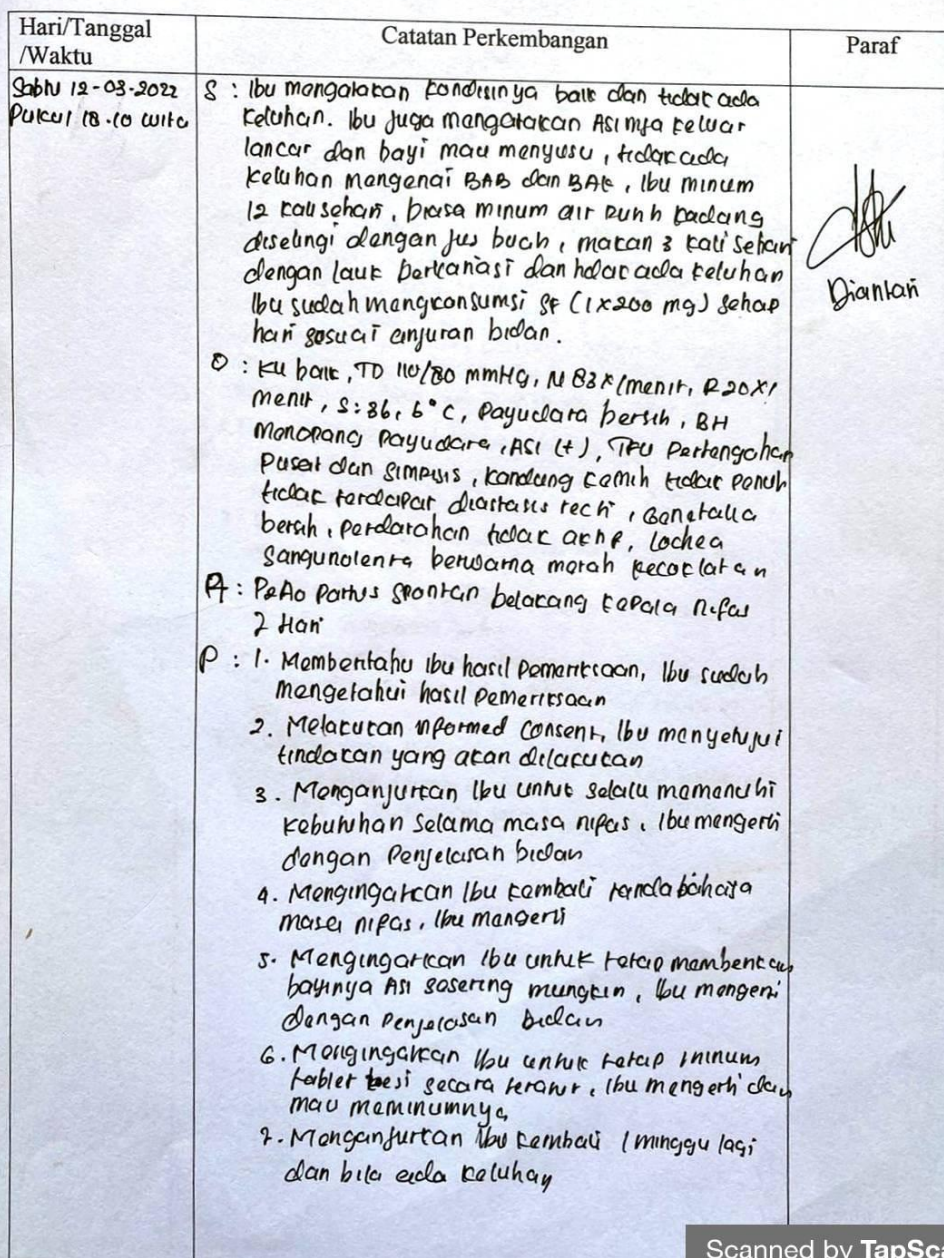 Hari/Tanggal
/Waktu
Catatan Perkembangan
Paraf
Sabtu 12-03-2022
Pukul 18.10 wita
S : Ibu mengatakan kondisinya baik dan tidak ada
keluhan. Ibu juga mengatakan ASInya keluar
lancar dan bayi mau menyusu, tidak ada
keluhan mengenai BAB dan BAK, Ibu minum
12 kali sehari, biasa minum air putih kadang
diselingi dengan jus buah, makan 3 kali sehari
dengan lauk bervariasi dan tidak ada keluhan
Ibu sudah mengkonsumsi SF (1x200 mg) setiap
hari sesuai anjuran bidan.
O : KU baik, TD 110/80 mmHg, N 83x/menit, R 20x/
menit, S: 36,6°C, Payudara bersih, BH
menopang payudara, ASI (+), TFU Pertengahan
Pusat dan simpisis, kandung kemih tidak penuh
tidak terdapat diastasis recti, Genetalia
bersih, perdarahan tidak aktif, Lochea
Sangunolenta berwarna merah kecoklatan
A : P2A0 Partus Spontan belakang kepala nifas
2 Hari
P : 1. Memberitahu Ibu hasil Pemeriksaan, Ibu sudah
mengetahui hasil pemeriksaan
2. Melakukan informed Consent, Ibu menyetujui
tindakan yang akan dilakukan
3. Menganjurkan Ibu untuk selalu memenuhi
kebutuhan selama masa nifas, Ibu mengerti
dengan Penjelasan bidan
4. Mengingatkan Ibu kembali tanda bahaya
masa nifas, Ibu mengerti
5. Mengingatkan Ibu untuk tetap memberikan
bayinya ASI sesering mungkin, Ibu mengerti
dengan penjelasan bidan
6. Mengingatkan Ibu untuk tetap minum
tablet besi secara teratur, Ibu mengerti dan
mau meminumnya
7. Menganjurkan Ibu kembali 1 minggu lagi
dan bila ada keluhan
Diantari
Scanned by TapSca